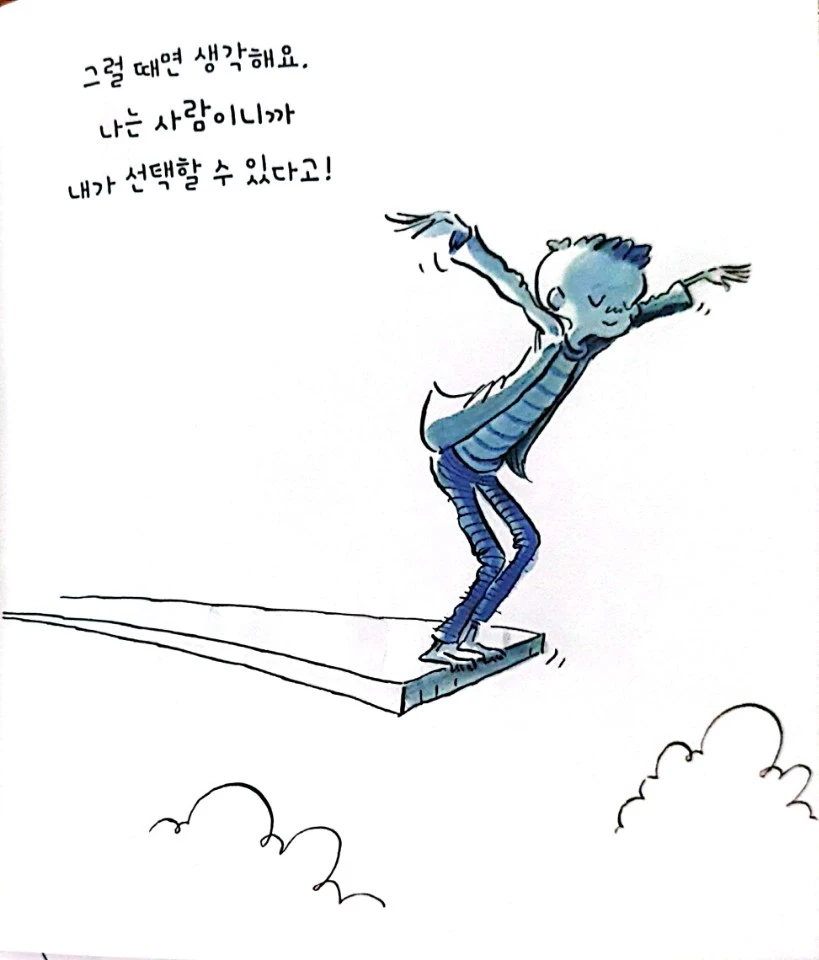 그럴 때면 생각해요.
나는 사람이니까
내가 선택할 수 있다고!